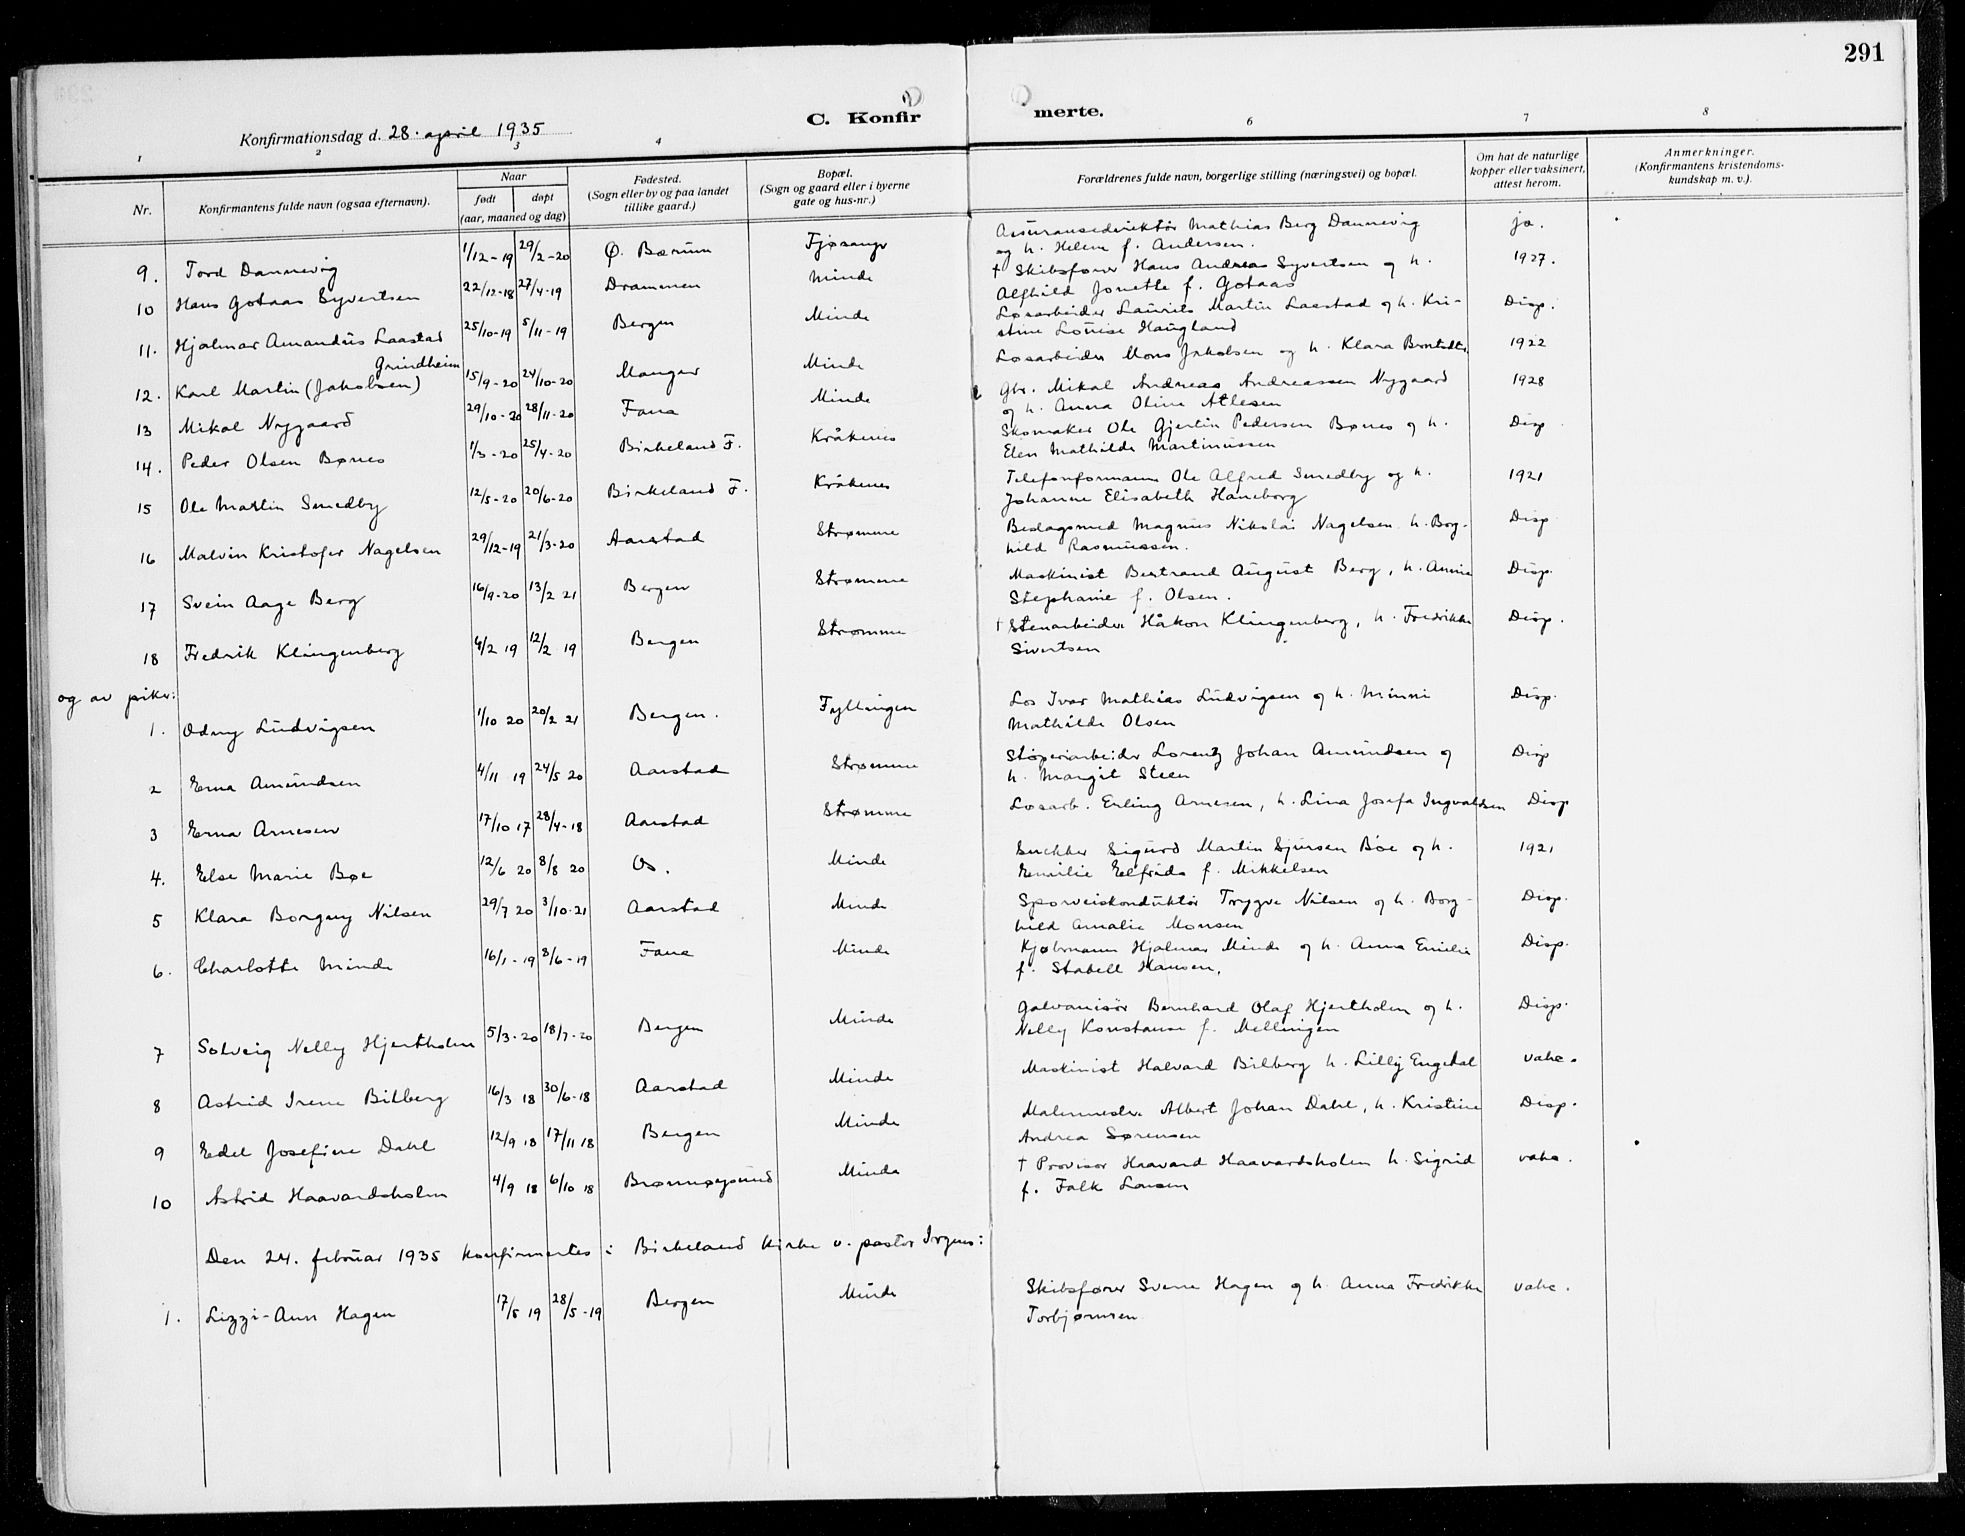 291
Konfirmationsdag d. 28. april 1935
C. Konfirmerte.
1 2 3 4 6 7 8
Nr.
Konfirmantens fulde navn (ogsaa efternavn).
Naar
født døpt
(aar, maaned og dag)
Fødested.
(Sogn eller by og paa landet
tillike gaard.)
Bopæl.
(Sogn og gaard eller i byerne
gate og hus-nr.)
Forældrenes fulde navn, borgerlige stilling (næringsvei) og bopæl.
Om hat de naturlige
kopper eller vaksinert,
attest herom.
Anmerkninger.
(Konfirmantens kristendoms-
kundskap m. v.).
9. Tord Dannevig 1/12-19 29/2-20 Ø. Bærum Fjøsanger Assuransedirektør Mathias Berg Dannevig ja.
og h. Helene f. Andersen.
10 Hans Gotaas Syvertsen 22/12-18 27/4-19 Drammen Minde † Skibsfører Hans Andreas Syvertsen og h. 1927.
Alfhild Jonette f. Gotaas
11. Hjalmar Amandus Laastad 25/10-19 5/11-19 Bergen Minde Løsarbeider Laurits Martin Laastad og h. Kri- Disp.
stine Louise Haugland
Grindheim
12. Karl Martin (Jakobsen) 15/9-20 24/10-20 Manger Minde Løsarbeider Mons Jakobsen og h. Klara 1922
13 Mikal Nygaard 29/10-20 28/11-20 Fana Minde Gbr. Mikal Andreas Andreassen Nygaard 1928
og h. Anna Oline Atlesen
14. Peder Olsen Bønes 1/3-20 25/4-20 Birkeland F. Kråkenes Skomaker Ole Gjertin Pedersen Bønes og h. Disp.
Elen Mathilde Martinussen
15 Ole Martin Smedby 12/5-20 20/6-20 Birkeland F. Kråkenes Telefonformann Ole Alfred Smedby og h. 1921
Johanne Elisabeth Haneborg
16 Malvin Kristofer Nagelsen 29/12-19 21/3-20 Aarstad Strømme Beslagsmed Magnus Nikolai Nagelsen h. Borg- Disp.
hild Rasmussen.
17 Svein Aage Berg 16/9-20 13/2 21 Bergen Strømme Maskinist Bertrand August Berg, h. Annie Disp.
Stephanie f. Olsen.
18 Fredrik Klingenberg 4/2 19 12/2 19 Bergen Strømme † Stenarbeider Håkon Klingenberg, h. Fredrikke Disp.
Sivertsen
og av piker:
1. Odny Ludvigsen 1/10 20 20/2 21 Bergen. Fyllingen Los Ivar Mathias Ludvigsen og h. Minni Disp.
Mathilde Olsen
2 Erna Amundsen 4/11 19 24/5 20 Aarstad Strømme Støperiarbeider Lorentz Johan Amundsen og Disp
h. Margit Steen
3 Erna Arnesen 17/10 17 28/4-18 Aarstad Strømme Løsarb. Erling Arnesen, h. Lina Josefa Ingvaldsen Disp
4. Else Marie Bøe 12/6 20 8/8 20 Os. Minde Snekker Sigurd Martin Sjursen Bøe og h. 1921
Emilie Elfrida f. Mikkelsen
5 Klara Borgny Nilsen 29/7 20 3/10-21 Aarstad Minde Sporveiskonduktør Trygve Nilsen og h. Borg- Disp.
hild Amalie Monsen
6. Charlotte Minde 16/1-19 8/6-19 Fana Minde Kjøbmann Hjalmar Minde og h. Anna Emilie Disp.
f. Stabell Hansen.
7 Solveig Nelly Hjertholm 5/3-20 18/7-20 Bergen Minde Galvanisør Bernhard Olaf Hjertholm og h. Disp.
Nelly Konstanse f. Mellingen
8 Astrid Irene Bilberg 16/3 18 30/6-18 Aarstad Minde Maskinist Halvard Bilberg h. Lilly Engedal vakc.
9 Edel Josefine Dahl 12/9 18 17/11 18 Bergen Minde Malermester Albert Johan Dahl, h. Kristine Disp.
Andrea Sørensen
10 Astrid Haavardsholm 4/9 18 6/10 18 Brønnøysund Minde † Provisor Haavard Haavardsholm h. Sigrid vakc.
f. Falk Larsen
Den 24. februar 1935 konfirmertes i Birkeland kirke v. pastor Irgens:
1. Lizzi-Ann Hagen 17/5 19 28/5-19 Bergen Minde Skibsfører Sverre Hagen og h. Anna Fredrikke vakc.
Torbjørnsen